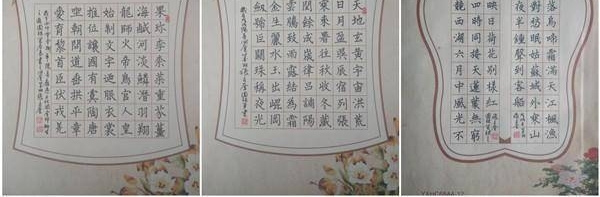 果珍李柰菜重芥薑
海鹹河淡鱗潛羽翔
龍師火帝鳥官人皇
始制文字迺服衣裳
推位讓國有虞陶唐
坐朝問道垂拱平章
愛育黎首臣伏戎羌
天地玄黃宇宙洪荒
日月盈昃辰宿列張
寒來暑往秋收冬藏
閏餘成歲律呂調陽
雲騰致雨露結為霜
金生麗水玉出崑岡
劍號巨闕珠稱夜光
落烏啼霜滿天江楓漁
對愁眠姑蘇城外寒山
夜半鐘聲到客船
映日荷花別樣紅
四時同接天蓮葉無窮
竟西湖六月中風光不